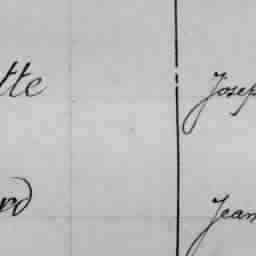 tte Josep
rd Jean